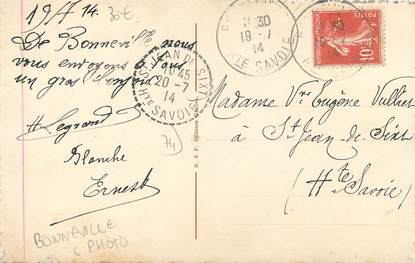 19/7 14. 30€
De Bonneville nous
vous envoyons à tous
un gros
H Legrand
Blanche
Ernest
BONNEVILLE
C PHOTO
ST JEAN DE SIXT
10 45
20-7
14
Hte SAVOIE
74
11 30
19-7
14
Hte SAVOIE
POSTES
10
Madame Vve Eugène Vulliet
à St Jean de Sixt
(Hte Savoie)